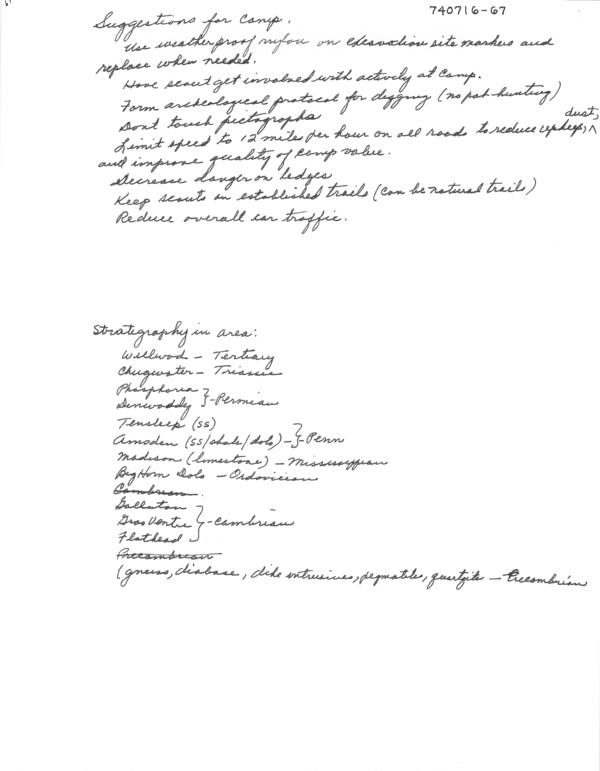 740716-67
Suggestions for Camp.
Use weatherproof nylon on excavation site markers and
replace when needed.
Have scout get involved with activity at Camp.
Form archeological protocol for digging (no pot-hunting)
Dont touch pictographs
dust,
Limit speed to 12 miles per hour on all roads to reduce upkeep, ^
and improve quality of Camp value.
Decrease danger on ledges
Keep scouts on established trails (can be natural trails)
Reduce overall car traffic.
Stratigraphy in area:
Willwod - Tertiary
Chugwater - Triassic
Phosphoria
Dinwoddy } - Permian
Tensleep (ss)
Amoden (ss/shale/dolo) - } - Penn
Madison (limestone) - Mississippian
BigHorn Dolo - Ordovician
Cambrian.
Gallaton
Gros Ventre } - Cambrian
Flathead
Precambrian
(gneiss, diabase, dike intrusives, pegmatites, quartzite - Precambrian